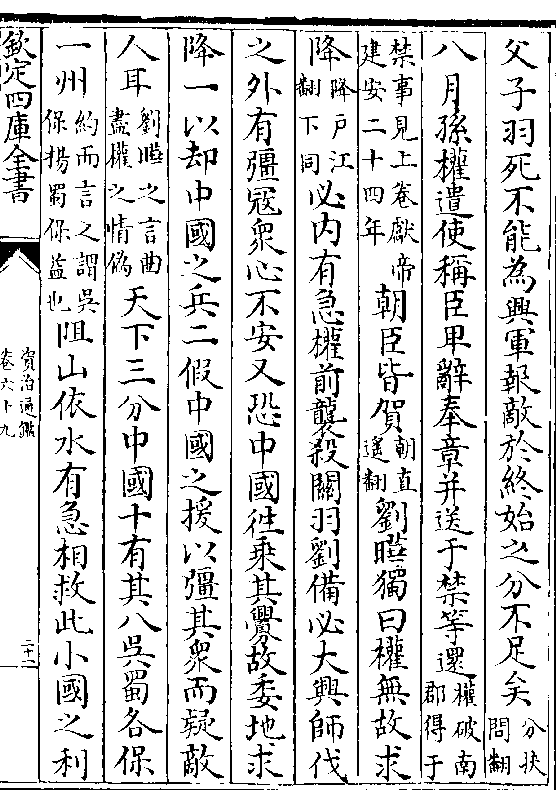 父子羽死不能為興軍報敵於終始之分不足矣分扶問翻
八月孫權遣使稱臣卑辭奉章并送于禁等還權破南郡得于
禁事見上卷獻帝建安二十四年朝臣皆賀朝直遙翻劉曄獨曰權無故求
降降戶江翻下同必内有急權前襲殺關羽劉備必大興師伐
之外有彊寇衆心不安又恐中國徃乗其釁故委地求
降一以却中國之兵二假中國之援以彊其衆而疑敵
人耳劉曄之言曲盡權之情偽天下三分中國十有其八吳蜀各保
一州約而言之謂吳保揚蜀保益也阻山依水有急相救此小國之利
欽定四庫全書
資治通鑑
卷六十九
二十一